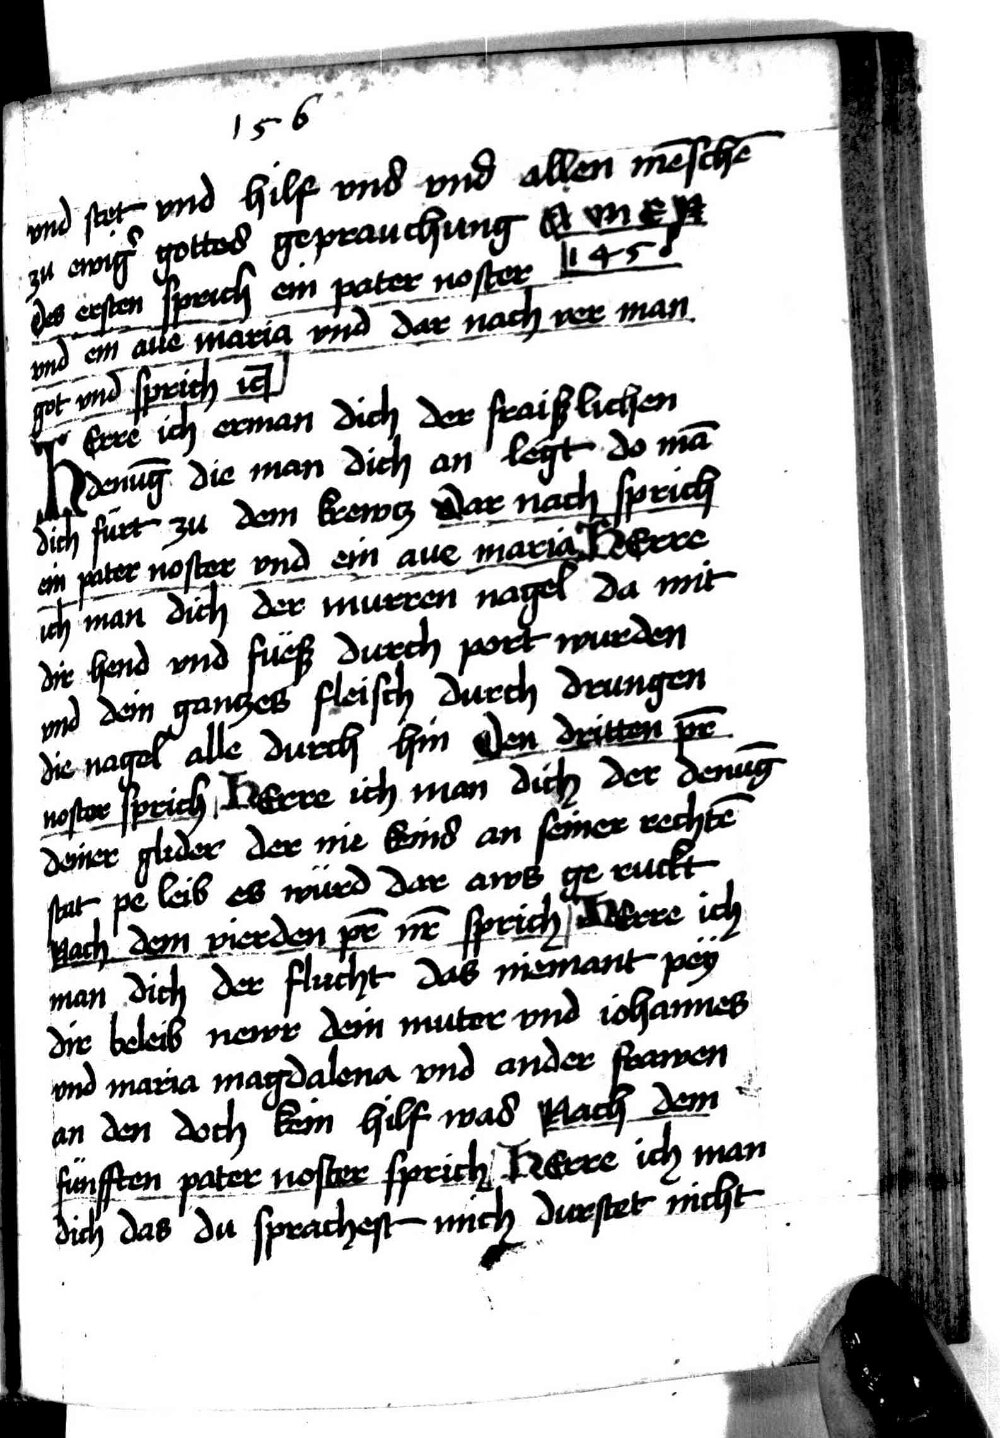 156
vnd stet vnd hilf vns vnd allen mēschē
zu ewigr̄ gottes geprauchung AMEN
des ersten sprich ein pater noster 145
vnd ein aue maria vnd dar nach ver man
got vnd sprich ich
HErre ich erman dich der fraißlichen
denūg die man dich an legt do mā
dich fürt zu dem krewcz Dar nach sprich
ein pater noster vnd ein aue maria HErre
ich man dich der murren nagel da mit
dir hend vnd füeß durch port wurden
vnd dein ganczes fleisch durch drungen
die nagel alle durch hin Den dritten pr̄
noster sprich HErre ich man dich der denūg
deiner glider der nie keins an seiner rechtē
stat pe leib es würd dar aws ge ruckt
Nach dem vierden pr̄ nr̄ sprich HErre ich
man dich der flucht das niemant peÿ
dir beleib newr dein muter vnd iohannes
vnd maria magdalena vnd ander frawen
an den doch kein hilf was Nach dem
fünfften pater noster sprich HErre ich man
dich das du sprachest mich durstet nicht